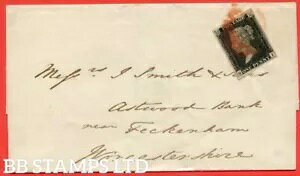 Mess rs J Smith & Sons
Astwood Bank
near Feckenham
Worcestershire
POSTAGE
ONE PENNY
BB STAMPS LTD